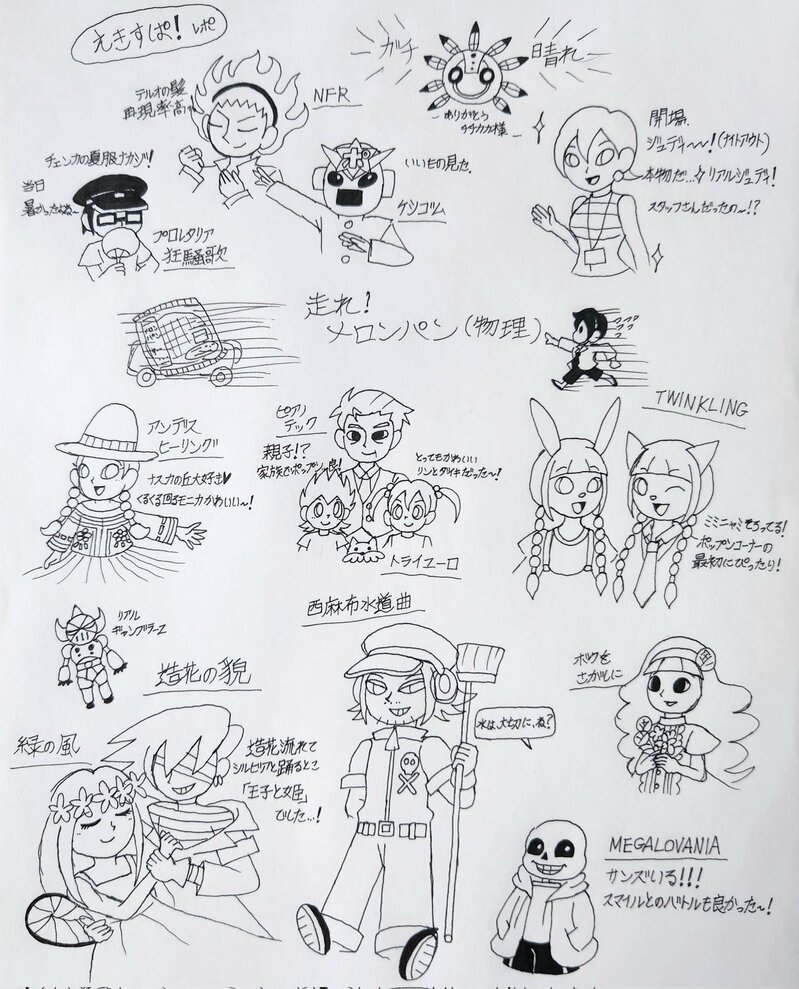 えきすぱ！レポ
ガチ
晴れ
ありがとう
テルオの髪
再現率高
NFR
チェンカの夏服ナカジ！
当日
暑かったよね〜
プロレタリア
狂騒歌
ポ
いいもの見た。
ケシゴム
開場、
ジュディ〜〜！(ナイトアウト)
本物だ…✧リアルジュディ！
スタッフさんだったの〜!?
走れ！
メロンパン(物理)
アンデス
ヒーリング
ナスカの丘大好き♥
くるくる回るモニカかわいい〜！
ピアノ
テック
親子!?
とってもかわいい
リンとダイキだった〜！
トライユーロ
TWINKLING
ミミニャミそろってる！
ポップンコーナーの
最初にぴったり！
リアル
ギャンブラーZ
造花の貌
緑の風
造花流れて
シルビアと踊るとこ
「王子と姫」
でした…！
西麻布水道曲
水は、大切に、ね？
ボクを
さがしに
MEGALOVANIA
サンズいる!!!
スマイルとのバトルも良かった〜！